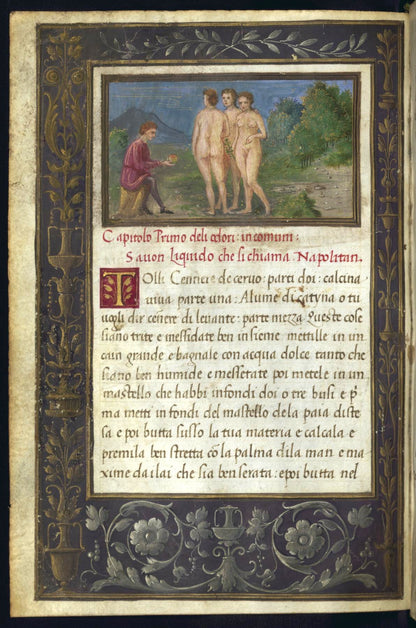 Capitolo Primo deli odori: in comun:
Savon Liquido che si chiama Napolitan.
TOlli Cennere de cervo: parti doi: calcina
viva parte una: Alume di catyna o tu
vogli dir cenere di levante: parte mezza Queste cose
siano trite e messidate ben insieme mettile in un
cain grande e bagnale con acqua dolce tanto che
siano ben humide e messetate poi metele in un
mastello che habbi in fondi doi o tre busi e p
ma metti in fondi del mastello dela paia diste
sa e poi butta susso la tua materia e calcala e
premila ben stretta cō la palma dila man e ma
xime da i lai che sia ben serata: e poi butta nel